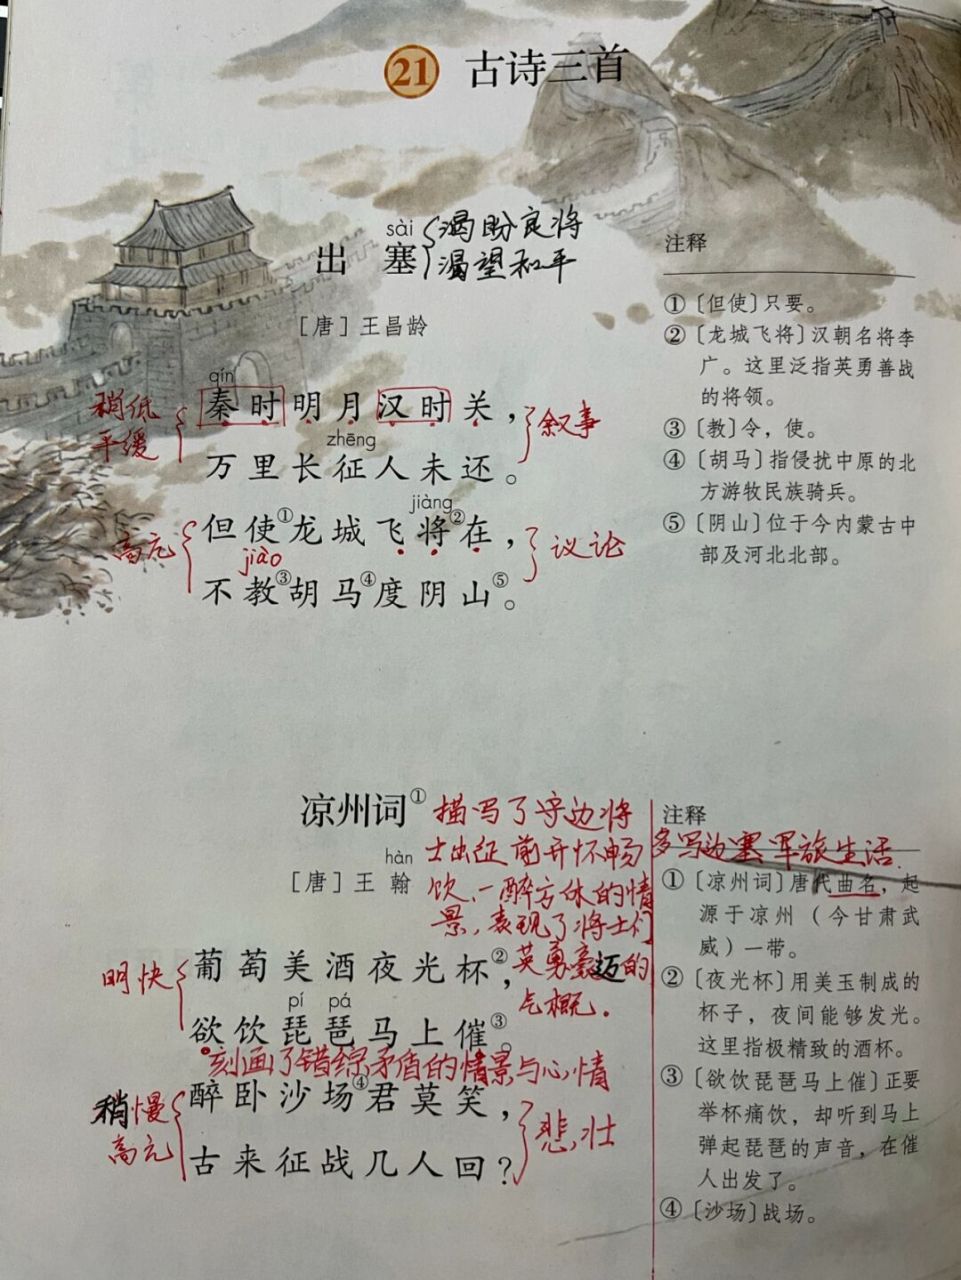 21 古诗三首
sài
出 塞
渴盼良将
渴望和平
［唐］王昌龄
qín
秦时明月汉时关，
zhēng
万里长征人未还。
jiàng
但使①龙城飞将②在，
jiào
不教③胡马④度阴山⑤。
稍低
平缓
叙事
高亢
议论
注释
①〔但使〕只要。
②〔龙城飞将〕汉朝名将李
广。这里泛指英勇善战
的将领。
③〔教〕令，使。
④〔胡马〕指侵扰中原的北
方游牧民族骑兵。
⑤〔阴山〕位于今内蒙古中
部及河北北部。
凉州词①
hàn
［唐］王 翰
描写了守边将
士出征前开怀畅
饮、一醉方休的情
景，表现了将士们
英勇豪迈的
气概.
葡萄美酒夜光杯②，
pí pá
欲饮琵琶马上催③。
刻画了错综矛盾的情景与心情
醉卧沙场④君莫笑，
古来征战几人回？
明快
稍慢
高亢
悲壮
注释
多写边塞军旅生活.
①〔凉州词〕唐代曲名，起
源于凉州（今甘肃武
威）一带。
②〔夜光杯〕用美玉制成的
杯子，夜间能够发光。
这里指极精致的酒杯。
③〔欲饮琵琶马上催〕正要
举杯痛饮，却听到马上
弹起琵琶的声音，在催
人出发了。
④〔沙场〕战场。